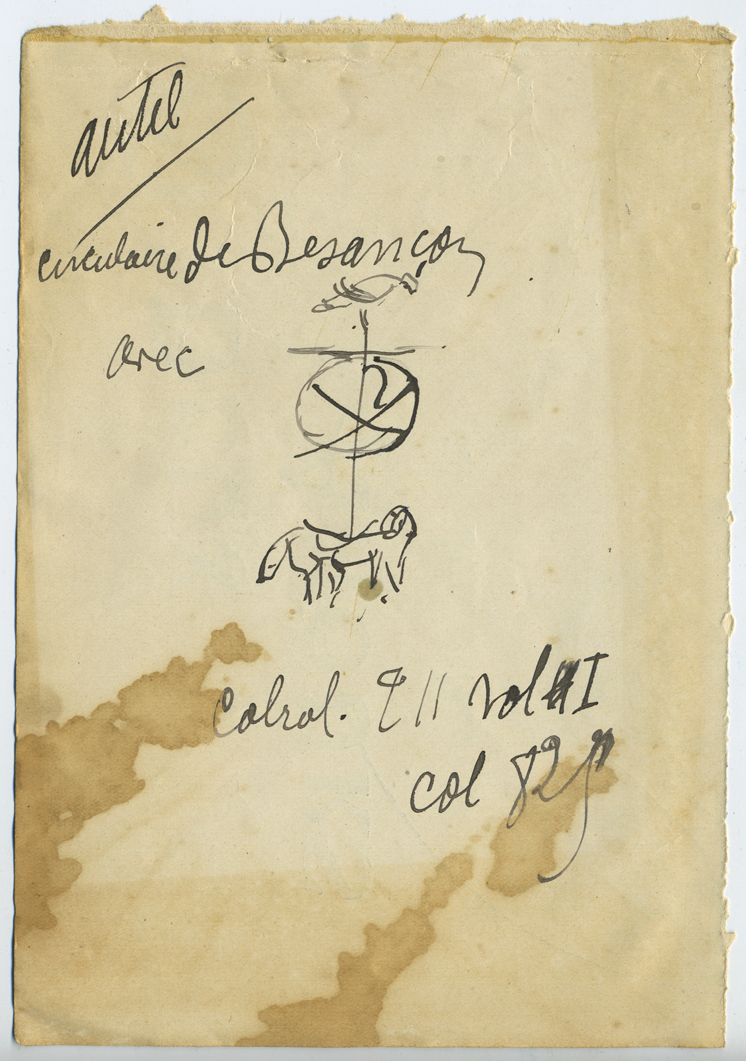 autel
circulaire de Besançon
avec
Cabrol. T II vol I
col 825